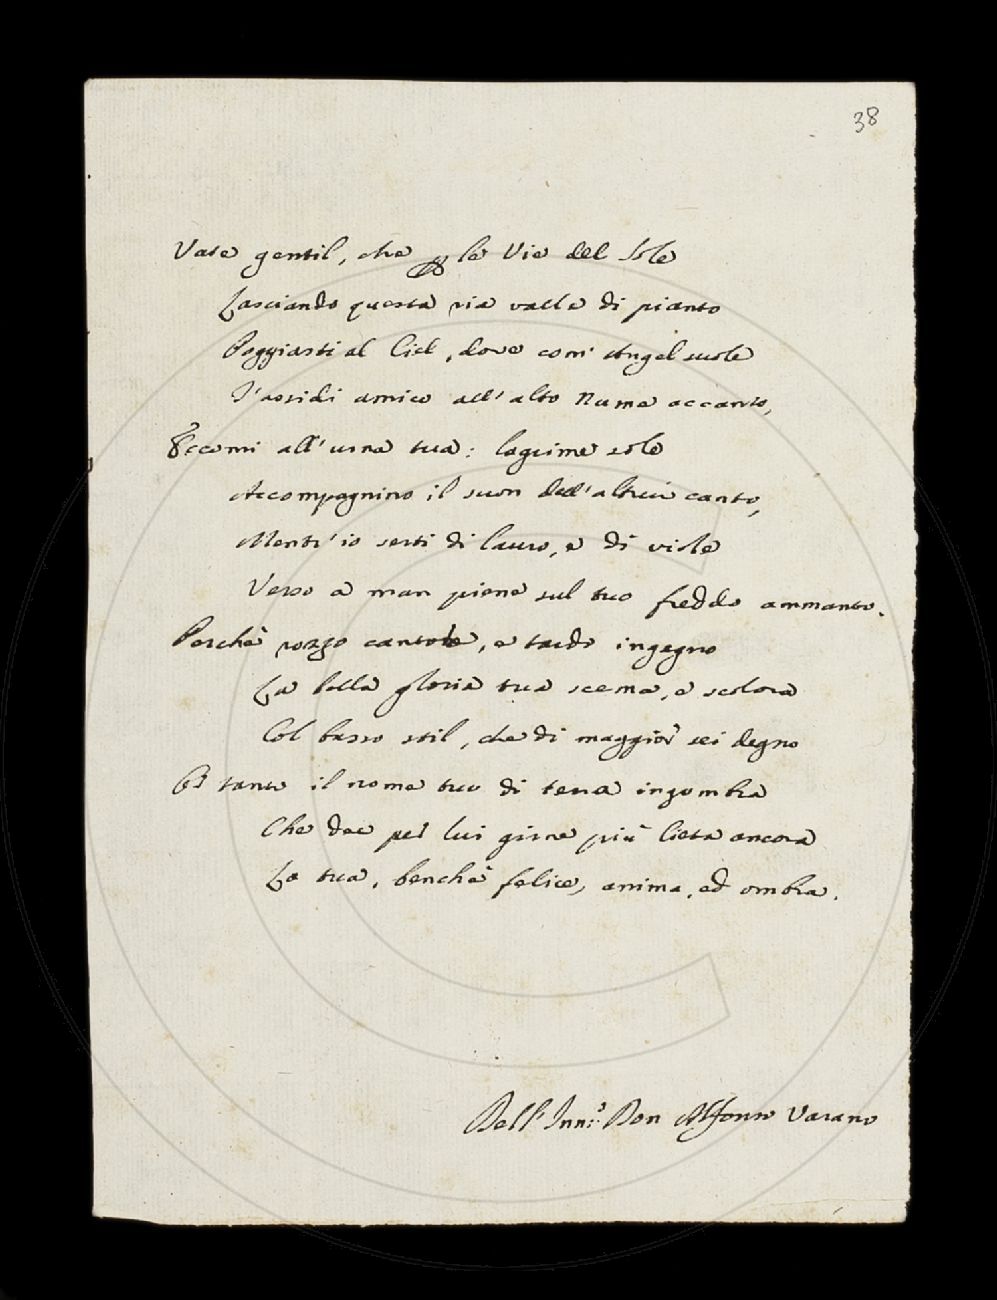 38
Vate gentil, che p le Vie del Sole
Lasciando questa ria valle di pianto
Poggiasti al Ciel, dove com' Angel suole
T'assidi amico all'alto Nume accanto,
Eccomi all'urna tua: lagrime sole
Accompagnino il suon dell'altrui canto,
Mentr'io serti di lauro, e di viole
Verso a man piene sul tuo freddo ammanto.
Perchè rozzo cantore, e tardo ingegno
La bella gloria tua scema, e scolora
Col basso stil, che di maggior sei degno
Pⁱ tanto il nome tuo di terra ingombra
Che dee per lui girne più lieta ancora
La tua, benchè felice, anima, ed ombra.
Dell' Don Alfonso Varano